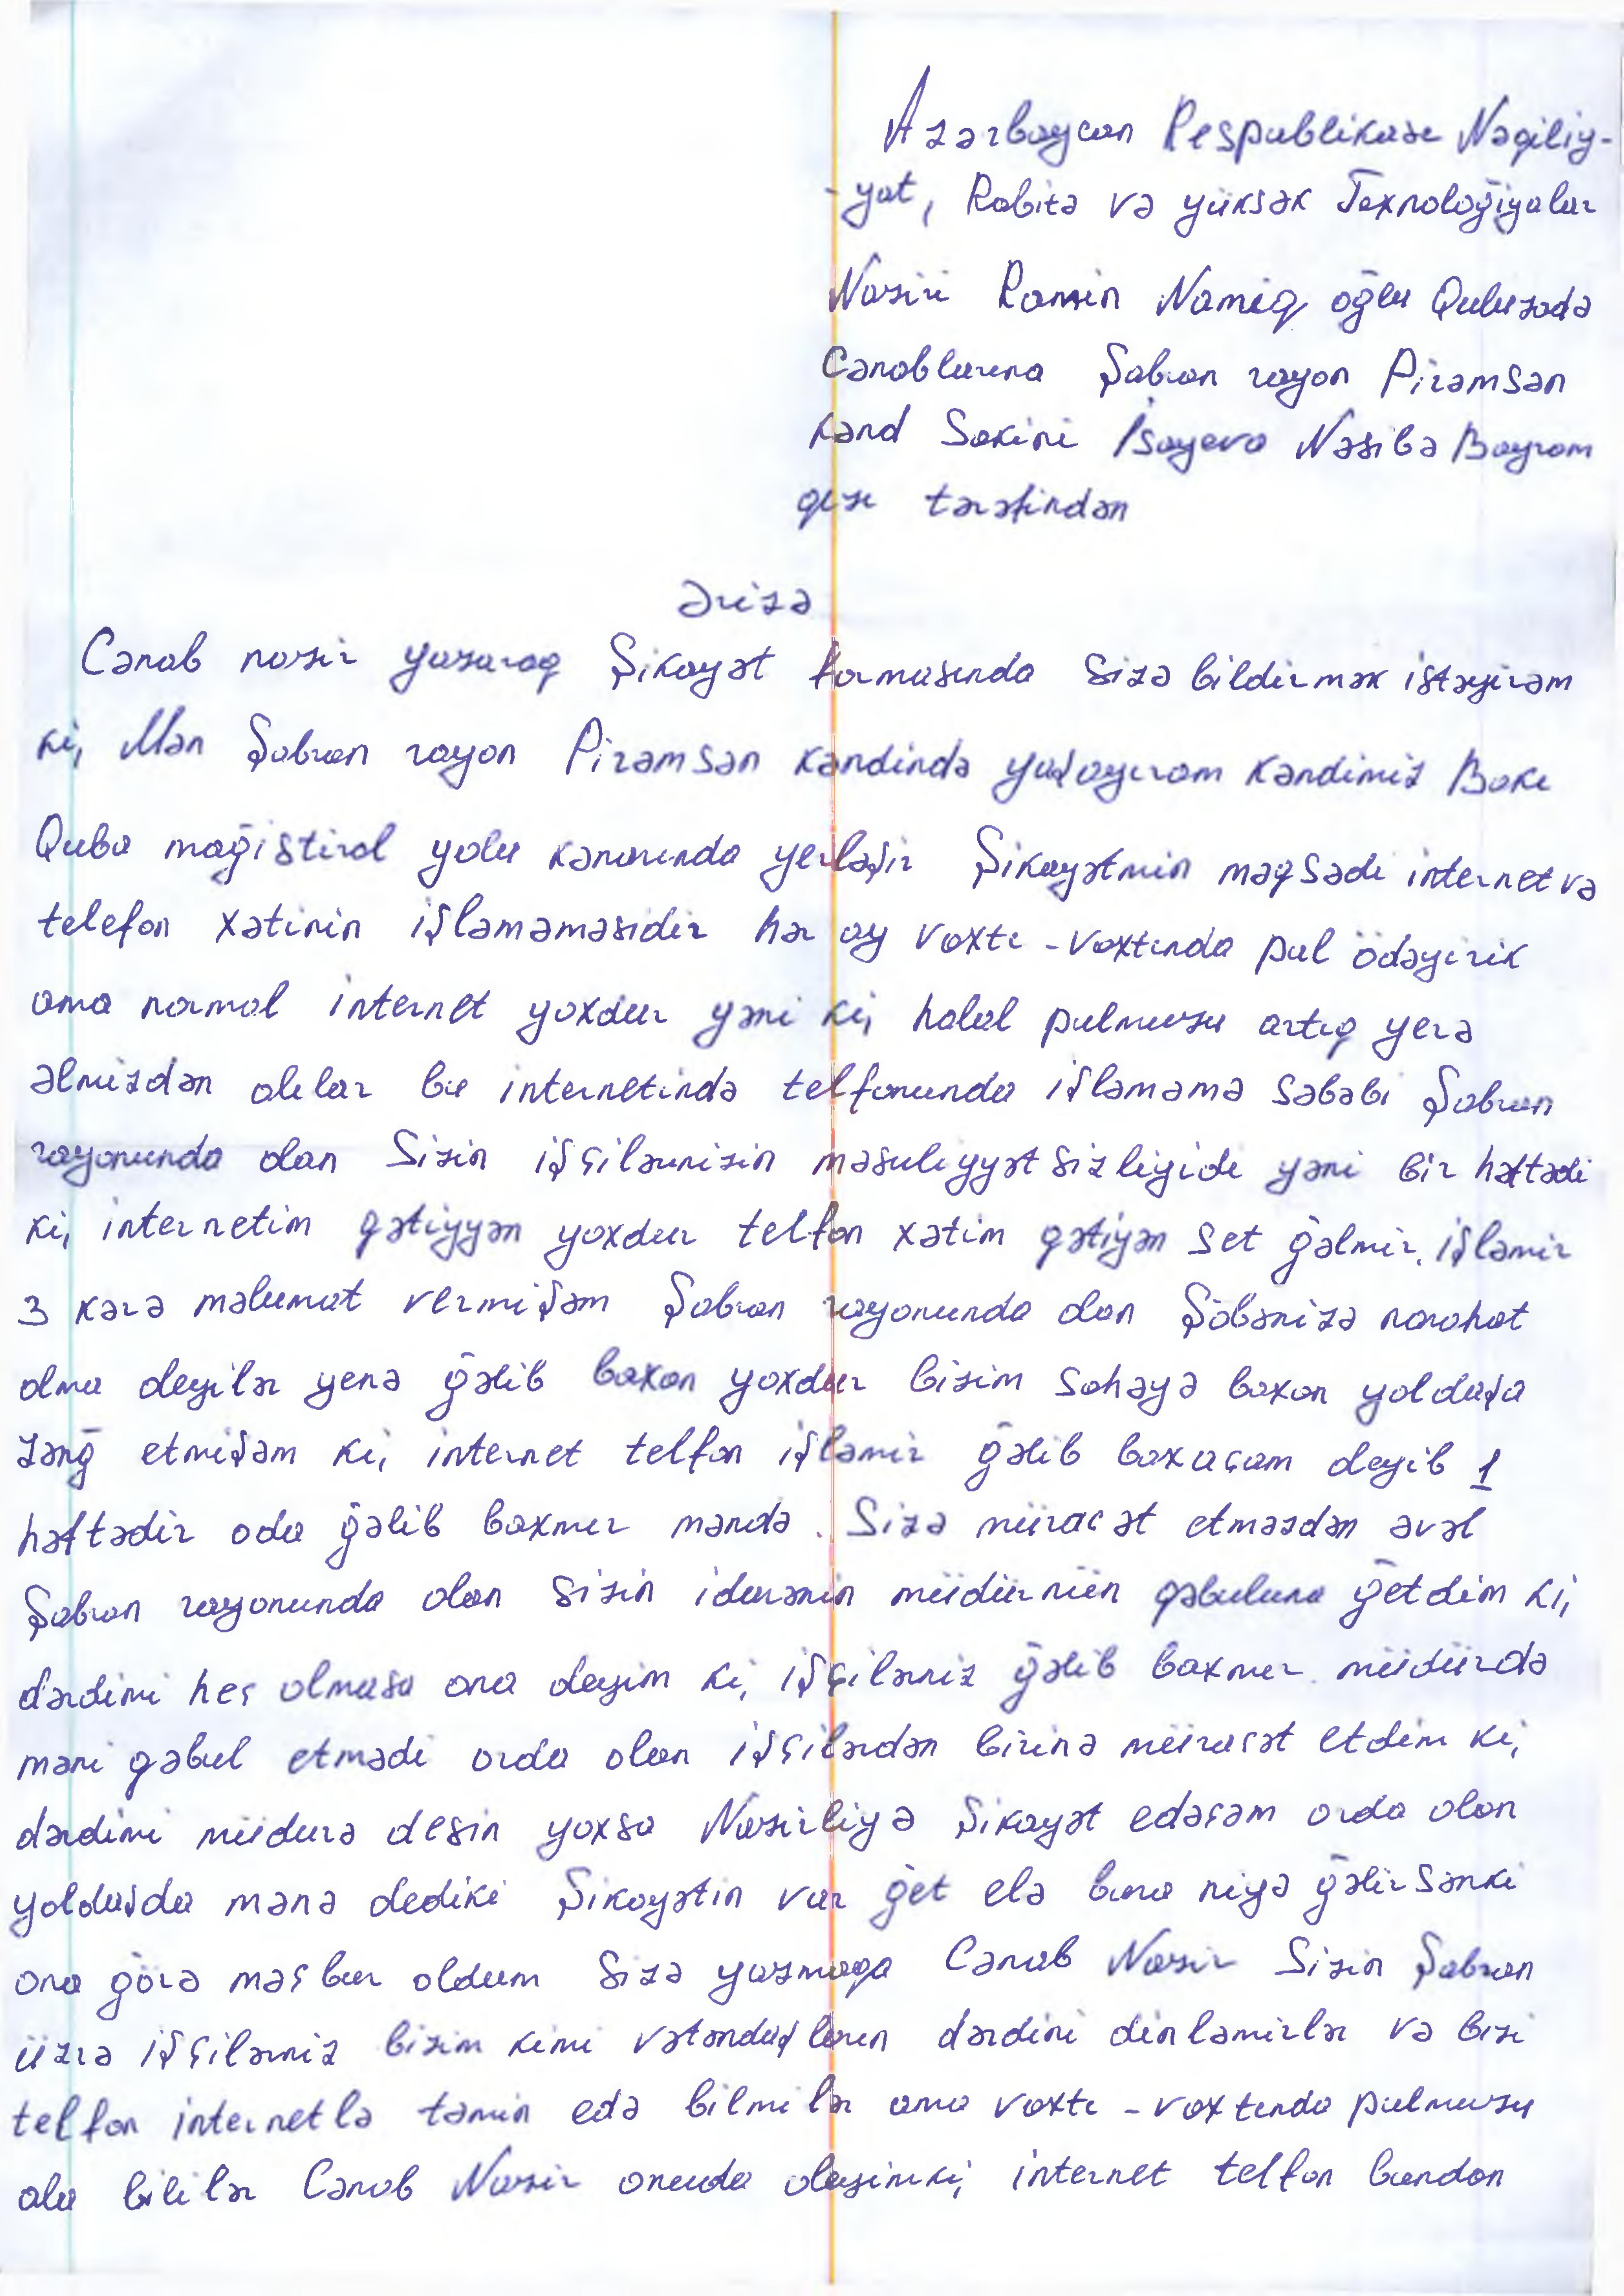 Azərbaycan Respublikası Nəqiliy-
-yat, Rabitə və yüksək Texnoloğiyalar
Naziri Ramin Namiq oğlu Quluzadə
Cənablarına Şabran rayon Pirəmsən
kənd Sakini İsayeva Nəsibə Bayram
qızı tərəfindən
Ərizə
Cənab nazir yazaraq Şikayət formasında Sizə bildirmək istəyirəm
ki, Mən Şabran rayon Pirəmsən kəndində yaşayıram kəndimiz Bakı
Quba mağistiral yolu kənarında yerləşir Şikayətmin məqsədi internet və
telefon xətinin işləməməsidir hər ay vaxtı-vaxtında pul ödəyirik
ama normal internet yoxdur yəni ki, halal pulmuzu artıq yerə
əlmizdən alılar bu internetində telfonunda işləməmə səbəbi Şabran
rayonunda olan Sizin işçilərnizin məsuliyyətsizliyidi yəni bir həftədi
ki, internetim qətiyyən yoxdur telfon xətim qətiyən set ğəlmir. işləmir
3 kərə məlumat vermişəm Şabran rayonunda olan Şöbənizə narahat
olma deyilər yenə ğəlib baxan yoxdur bizim sahəyə baxan yoldaşa
zənğ etmişəm ki, internet telfon işləmir ğəlib baxaçam deyib 1
həftədir oda ğəlib baxmır məndə. Sizə müraçət etməzdən əvəl
Şabran rayonunda olan Sizin idarənin müdürnün qəbuluna ğetdim ki,
dərdimi heç olmasa ona deyim ki, işçilərniz ğəlib baxmır. müdürdə
məni qəbul etmədi orda olan işçilərdən birinə müraçət etdim ki,
dərdimi müdurə desin yoxsa Nazirliyə Şikayət edəçəm orda olan
yoldaşda mənə dediki Şikayətin var ğet elə bura niyə ğəlirsənki
ona ğörə məçbur oldum Sizə yazmaqa Cənab Nazir Sizin Şabran
üzrə işçilərniz bizim kimi vətəndaşların dərdini dinləmirlər və bizi
telfon internetlə təmin edə bilmilər ama vaxtı-vaxtında pulmuzu
ala bililər Cənab Nazir onuda deyimki, internet telfon bundan